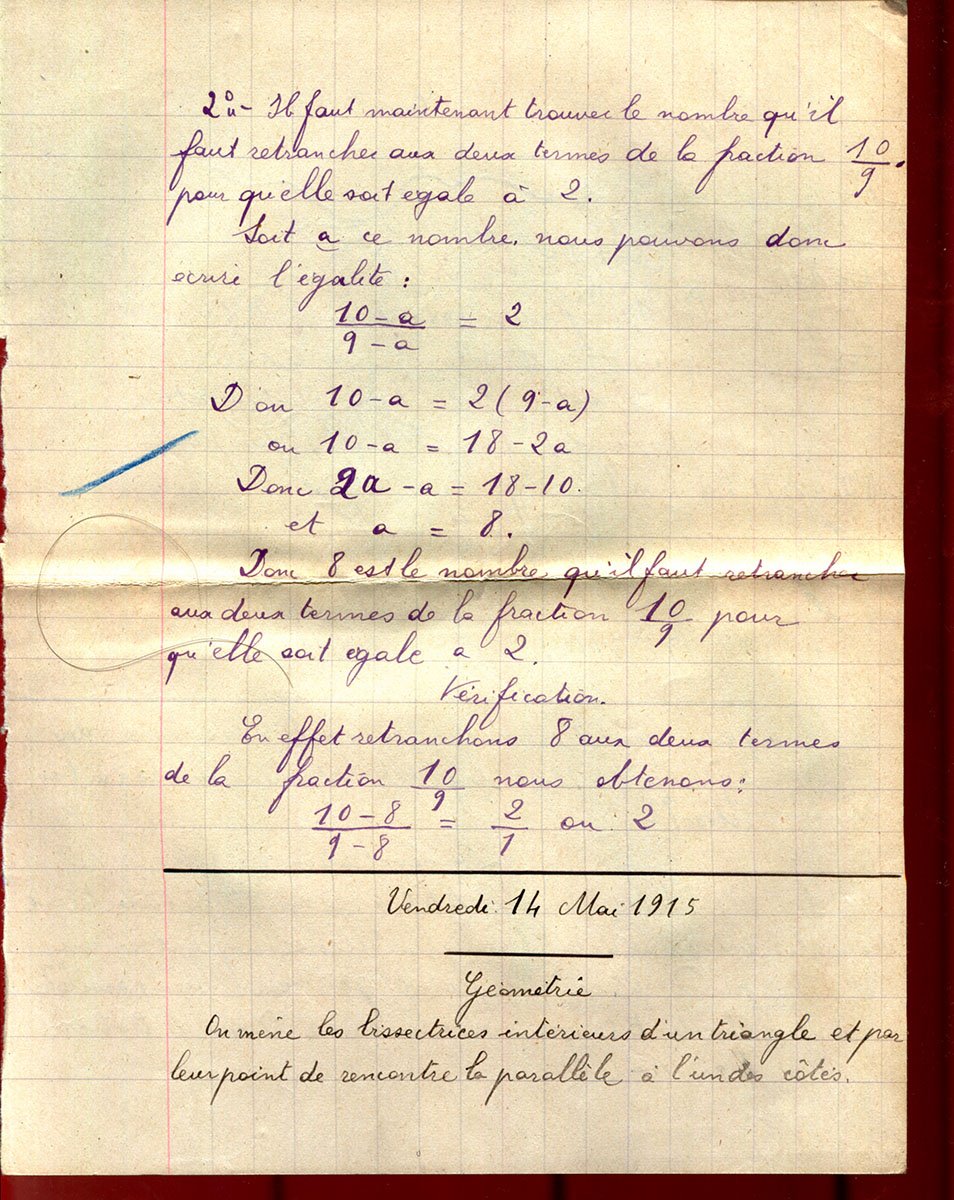 2° - Il faut maintenant trouver le nombre qu'il
faut retrancher aux deux termes de la fraction 10/9.
pour qu'elle soit egale à 2.
Soit a ce nombre. nous pouvons donc
ecrire l'égalité :
10-a/9-a = 2
D'ou 10-a = 2(9-a)
ou 10-a = 18-2a
Donc 2a-a = 18-10.
et a = 8.
Donc 8 est le nombre qu'il faut retrancher
aux deux termes de la fraction 10/9 pour
qu'elle soit egale a 2.
Vérification.
En effet retranchons 8 aux deux termes
de la fraction 10/9 nous obtenons:
10-8/9-8 = 2/1 ou 2
Vendredi 14 Mai 1915
Géométrie
On mène les bissectrices intérieurs d'un triangle et par
leur point de rencontre la parallèle à l'un des côtés.